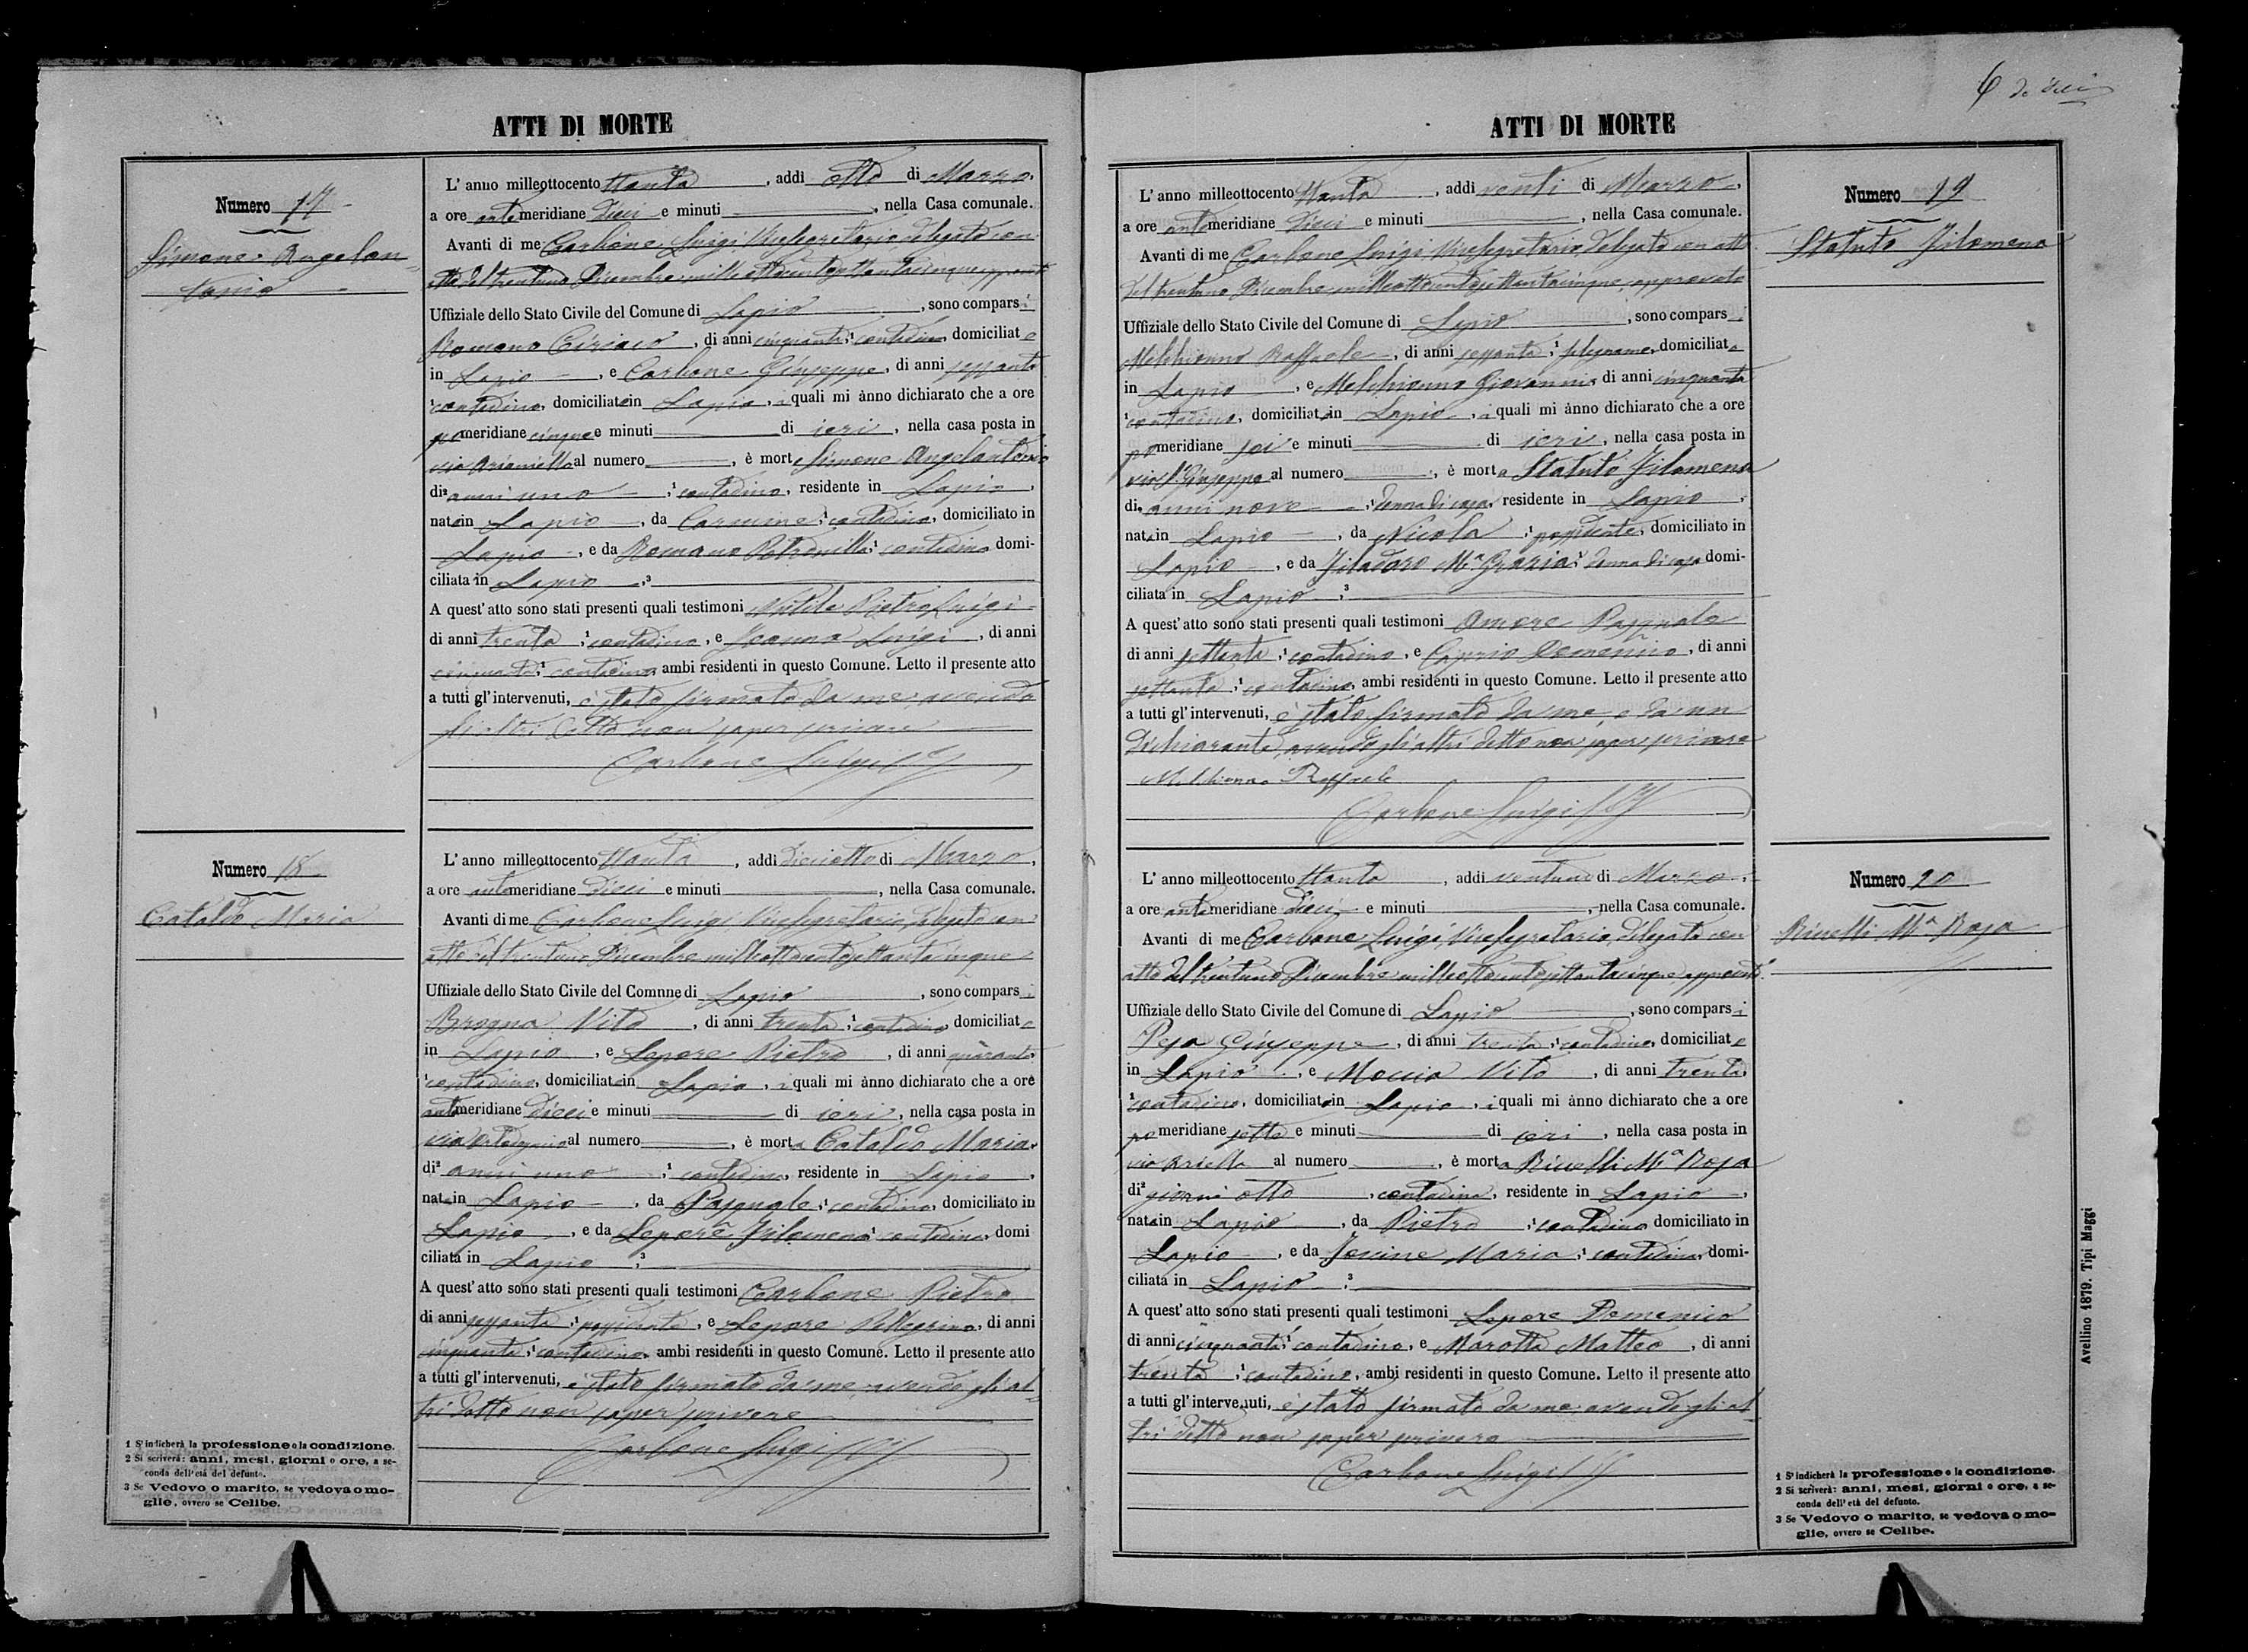 ATTI DI MORTE
Numero 17
Simone Angelan-
tonio
L' anno milleottocento ottanta, addì otto di Marzo,
a ore antemeridiane dieci e minuti, nella Casa comunale.
Avanti di me Carbone Luigi Vicesegretario delegato con
atto del trentuno Dicembre milleottocentosettantacinque
Uffiziale dello Stato Civile del Comune di Lapio, sono comparsi
Romano Ciriaco, di anni cinquanta, 1 contadino, domiciliato
in Lapio, e Carbone Giuseppe, di anni sessanta
1 contadino, domiciliato in Lapio, i quali mi ànno dichiarato che a ore
pomeridiane cinque e minuti di ieri, nella casa posta in
via al numero, è morto Simone Angelantonio
di 2 anni uno, 1 contadino, residente in Lapio,
nato in Lapio, da Carmine, 1 contadino, domiciliato in
Lapio, e da Romano Petronilla, 1 contadina, domi-
ciliata in Lapio, 3
A quest' atto sono stati presenti quali testimoni Pietro Luigi
di anni trenta, 1 contadino, e Luigi, di anni
cinquanta, 1 contadino, ambi residenti in questo Comune. Letto il presente atto
a tutti gl' intervenuti, è stato firmato da me, avendo
gli altri detto non saper scrivere
Carbone Luigi
Numero 18
Cataldo Maria
L' anno milleottocento ottanta, addì diciotto di Marzo,
a ore antemeridiane dieci e minuti, nella Casa comunale.
Avanti di me Carbone Luigi Vicesegretario, delegato con
atto del trentuno Dicembre milleottocentosettantacinque
Uffiziale dello Stato Civile del Comnne di Lapio, sono comparsi
Brogna Vito, di anni trenta, 1 contadino, domiciliato
in Lapio, e Lepore Pietro, di anni quaranta,
1 contadino, domiciliato in Lapio, i quali mi ànno dichiarato che a ore
antemeridiane dieci e minuti di ieri, nella casa posta in
via al numero, è morta Cataldo Maria,
di 2 anni uno, 1 contadina, residente in Lapio,
nata in Lapio, da Pasquale, 1 contadino, domiciliato in
Lapio, e da Lepore Filomena, 1 contadina, domi
ciliata in Lapio, 3
A quest' atto sono stati presenti quali testimoni Carbone Pietro
di anni sessanta, 1 possidente, e Lepore Pellegrino, di anni
cinquanta, 1 contadino, ambi residenti in questo Comune. Letto il presente atto
a tutti gl' intervenuti, è stato firmato da me avendo gli al-
tri detto non saper scrivere
Carbone Luigi
1 S' indicherà la professione o la condizione.
2 Si scriverà: anni, mesi, giorni o ore, a se-
conda dell' età del defunto.
3 Se Vedovo o marito, se vedova o mo-
glie, ovvero se Celibe.
ATTI DI MORTE
L' anno milleottocento ottanta, addì venti di Marzo,
a ore antemeridiane dieci e minuti, nella Casa comunale.
Avanti di me Carbone Luigi Vicesegretario, delegato con atto
del trentuno Dicembre milleottocentosettantacinque, approvato
Uffiziale dello Stato Civile del Comune di Lapio, sono comparsi
Melchionno Raffaele, di anni sessanta, 1 falegname, domiciliato
in Lapio, e Melchionno Giovanni, di anni cinquanta
1 contadino, domiciliato in Lapio, i quali mi ànno dichiarato che a ore
pomeridiane sei e minuti di ieri, nella casa posta in
via S. Giuseppe al numero, è morta Statuto Filomena
di 2 anni nove, 1 donna di casa, residente in Lapio,
nata in Lapio, da Nicola, 1 possidente, domiciliato in
Lapio, e da Filadoro Ma Grazia, 1 donna di casa domi-
ciliata in Lapio, 3
A quest' atto sono stati presenti quali testimoni Amore Pasquale
di anni settanta, 1 contadino, e Caprio Domenico, di anni
settanta, 1 contadino, ambi residenti in questo Comune. Letto il presente atto
a tutti gl' intervenuti, è stato firmato da me, e da un
dichiarante, avendo gli altri detto non saper scrivere
Melchionno Raffaele
Carbone Luigi
Numero 19
Statuto Filomena
L' anno milleottocento ottanta, addì ventuno di Marzo,
a ore antemeridiane dieci e minuti, nella Casa comunale.
Avanti di me Carbone Luigi Vicesegretario, delegato con
atto del trentuno Dicembre milleottocentosettantacinque approvato
Uffiziale dello Stato Civile del Comune di Lapio, sono comparsi
Pesa Giuseppe, di anni trenta, 1 contadino, domiciliato
in Lapio, e Moccia Vito, di anni trenta,
1 contadino, domiciliato in Lapio, i quali mi ànno dichiarato che a ore
pomeridiane sette e minuti di ieri, nella casa posta in
via al numero, è morta Ma Rosa
di 2 giorni otto, contadina, residente in Lapio,
nata in Lapio, da Pietro, 1 contadino domiciliato in
Lapio, e da Maria, 1 contadina, domi-
ciliata in Lapio, 3
A quest' atto sono stati presenti quali testimoni Lepore Domenico
di anni cinquanta, 1 contadino, e Marotta Matteo, di anni
trenta, 1 contadino, ambi residenti in questo Comune. Letto il presente atto
a tutti gl' intervenuti, è stato firmato da me avendo gli al-
tri detto non saper scrivere
Carbone Luigi
Numero 20
Ma Rosa
1 S' indicherà la professione o la condizione.
2 Si scriverà: anni, mesi, giorni o ore, a se-
conda dell' età del defunto.
3 Se Vedovo o marito, se vedova o mo-
glie, ovvero se Celibe.
Avellino 1879. Tipi Maggi